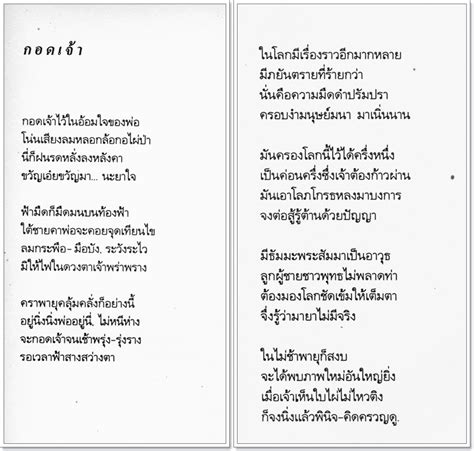 กอดเจ้า
กอดเจ้าไว้ในอ้อมใจของพ่อ
โน่นเสียงลมหลอกล้อกอไผ่ป่า
นี่ก็ฝนรดหลั่งลงหลังคา
ขวัญเอ๋ยขวัญมา... นะยาใจ
ฟ้ามืดก็มืดมนบนท้องฟ้า
ใต้ชายคาพ่อจะคอยจุดเทียนไข
ลมกระพือ- มือบัง, ระวังระไว
มิให้ไฟในดวงตาเจ้าพร่าพราง
คราพายุคลุ้มคลั่งก็อย่างนี้
อยู่นิ่งนิ่งพ่ออยู่นี่, ไม่หนีห่าง
จะกอดเจ้าจนเช้าพรุ่ง-รุ่งราง
รอเวลาฟ้าสางสว่างตา
ในโลกมีเรื่องราวอีกมากหลาย
มีภยันตรายที่ร้ายกว่า
นั่นคือความมืดดำปรัมปรา
ครอบงำมนุษย์มนา มาเนิ่นนาน
มันครองโลกนี้ไว้ได้ครึ่งหนึ่ง
เป็นค่อนครึ่งซึ่งเจ้าต้องก้าวผ่าน
มันเอาโลภโกรธหลงมาบงการ
จงต่อสู้รู้ต้านด้วยปัญญา
มีธัมมะพระสัมมาเป็นอาวุธ
ลูกผู้ชายชาวพุทธไม่พลาดท่า
ต้องมองโลกชัดเข้มให้เต็มตา
จึ่งรู้ว่ามายาไม่มีจริง
ในไม่ช้าพายุก็สงบ
จะได้พบภาพใหม่อันใหญ่ยิ่ง
เมื่อเจ้าเห็นใบไผ่ไม่ไหวติง
ก็จงนิ่งแล้วพินิจ-คิดครวญดู.